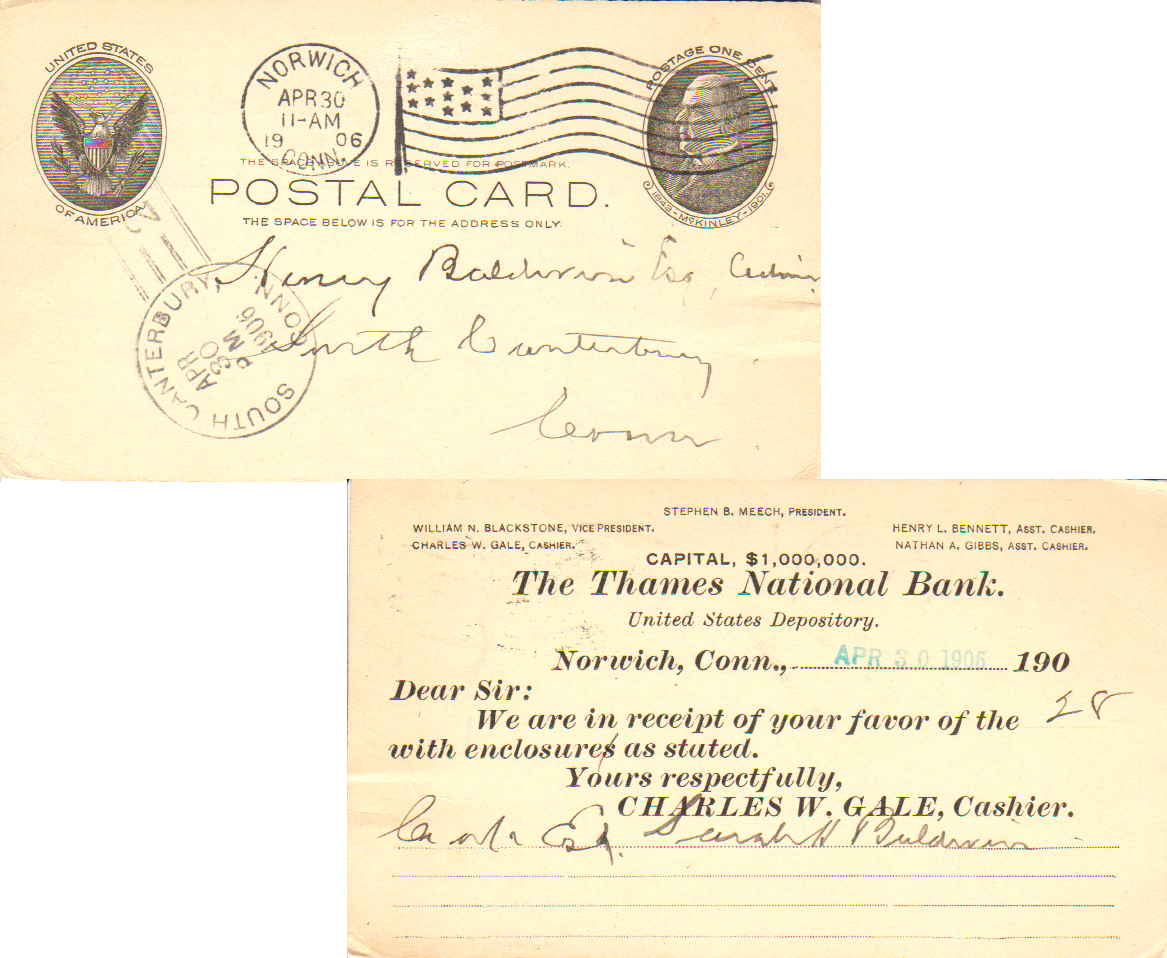 UNITED STATES
OF AMERICA
NORWICH
APR 30
11-AM
19 06
CONN.
POSTAGE ONE CENT
1843-McKINLEY-1901.
THE SPACE ABOVE IS RESERVED FOR POSTMARK.
POSTAL CARD.
THE SPACE BELOW IS FOR THE ADDRESS ONLY.
Henry Baldwin Esq,
South Canterbury
Conn
SOUTH CANTERBURY, CONN
APR
30
PM
1906
STEPHEN B. MEECH, PRESIDENT.
WILLIAM N. BLACKSTONE, VICE PRESIDENT.
HENRY L. BENNETT, ASST. CASHIER.
CHARLES W. GALE, CASHIER.
NATHAN A. GIBBS, ASST. CASHIER.
CAPITAL, $1,000,000.
The Thames National Bank.
United States Depository.
Norwich, Conn., APR 30 1906 190
Dear Sir:
We are in receipt of your favor of the 28
with enclosures as stated.
Yours respectfully,
CHARLES W. GALE, Cashier.
Est. Sarah H Baldwin